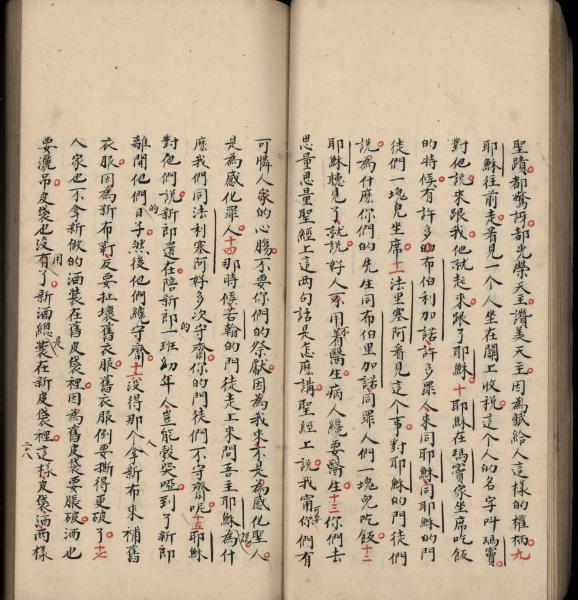 聖蹟都驚訝都光榮天主讚美天主因為賦給人這樣的權柄九
耶穌往前走看見一個人坐在關上收稅這個人的名字呌瑪竇
對他說來跟我他就起來跟了耶穌十耶穌在瑪竇家坐席吃飯
的時候有許多的布伯利加諾許多罪人來同耶穌同耶穌的門
徒們一塊兒坐席十一法里塞阿看見這个事對耶穌的門徒們
說為什麼你們的先生同布伯里加諾同罪人們一塊兒吃飯十二
耶穌聽見了就說好人不用着醫生病人纔要醫生十三你們去
思量思量聖經上這兩句話是怎麼講聖經上說我甯可你們有
可憐人家的心腸不要你們的祭獻因為我來不是為感化聖人
是為感化罪人十四那時候若翰的門徒走上來問吾主耶穌說為什
麼我們同法利塞阿好多次守齋你的門徒們不守齋呢十五耶穌
對他們說新郎還在陪新郎一班的幼年人豈能彀哭啞到了新郎
離開他們的日子然後他們纔守齋十六沒得那个人拿新布來補舊
衣服因為新布對反要扯壞舊衣服舊衣服倒要撕得更破了十七
人家也不拿新做的酒裝在舊皮袋裡因為舊皮袋要脹破酒也
要灑吊皮袋也沒有用了新酒總是裝在新皮袋裡這樣皮袋酒兩樣
二八